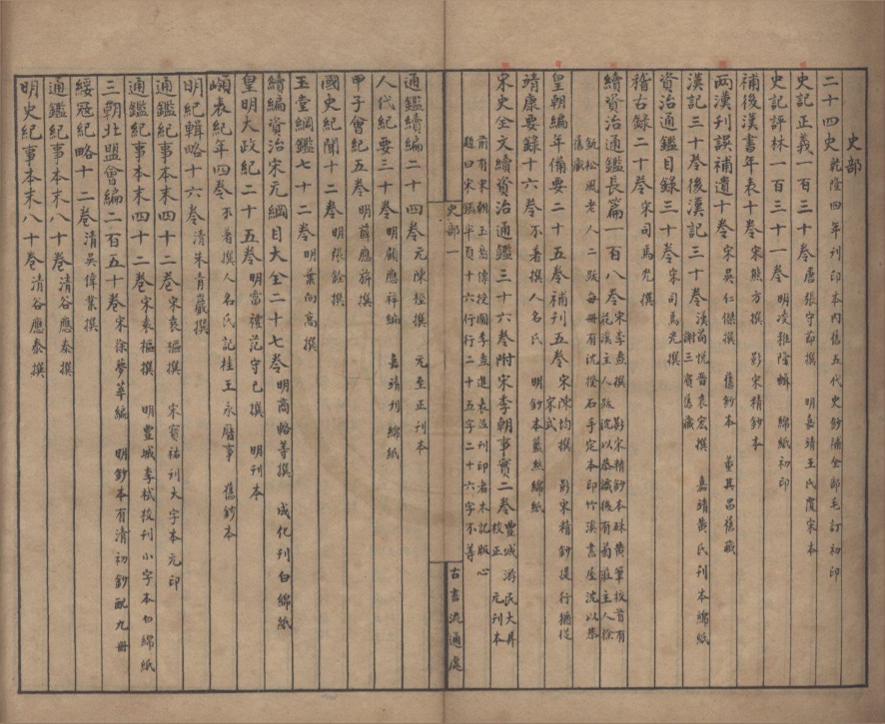 史部
二十四史 乾隆四年刊印本內舊五代史鈔補全部毛訂初印
史記正義一百三十卷 唐張守節撰 明嘉靖王氏覆宋本
史記評林一百三十一卷 明凌雅隆輯 綿紙初印
補後漢書年表十卷 宋熊方撰 影宋精鈔本
兩漢刊誤補遺十卷 宋吳仁傑撰 舊鈔本 董其昌舊藏
漢記三十卷後漢記三十卷 漢荀悅晉袁宏撰 嘉靖黃氏刊本綿紙 謝三賓舊藏
資治通鑑目錄三十卷 宋司馬光撰
稽古錄二十卷 宋司馬光撰
續資治通鑑長篇一百八卷 宋李燾撰 影宋精鈔本硃黃筆校首有花溪主人跋沈以恭識後有菊莊主人徐釚松風老人二跋每冊有沈撥石手定本印竹溪書屋沈以恭舊藏
皇朝編年備要二十五卷補刊五卷 宋陳均撰 影宋精鈔提行擡從宋式
靖康要錄十六卷 不著撰人名氏 明鈔本藍絲綿紙
宋史全文續資治通鑑三十六卷附宋季朝事實二卷 豐城游民大昇校正 元刊本
前有宋朝玉牒傳授圖李燾進表並刊印者木記版心題曰宋鑑半頁十六行行二十五字二十六字不等
史部一
古書流通處
通鑑續編二十四卷 元陳桱撰 元至正刊本
人代紀要三十卷 明顧應祥編 嘉靖刊綿紙
甲子會紀五卷 明薛應旂撰
國史紀聞十二卷 明張銓撰
玉堂綱鑑七十二卷 明葉向高撰
續編資治宋元綱目大全二十七卷 明商輅等撰 成化刊白綿紙
皇明大政紀二十五卷 明雷禮范守己撰 明刊本
嶺表紀年四卷 不著撰人名氏記桂王永曆事 舊鈔本
明紀輯略十六卷 清朱青巖撰
通鑑紀事本末四十二卷 宋袁樞撰 宋寶祐刊大字本元印
通鑑紀事本末四十二卷 宋袁樞撰 明豐城李栻校刊小字本白綿紙
三朝北盟會編二百五十卷 宋徐夢莘編 明鈔本有清初鈔配九冊
綏寇紀略十二卷 清吳偉業撰
通鑑紀事本末八十卷 清谷應泰撰
明史紀事本末八十卷 清谷應泰撰